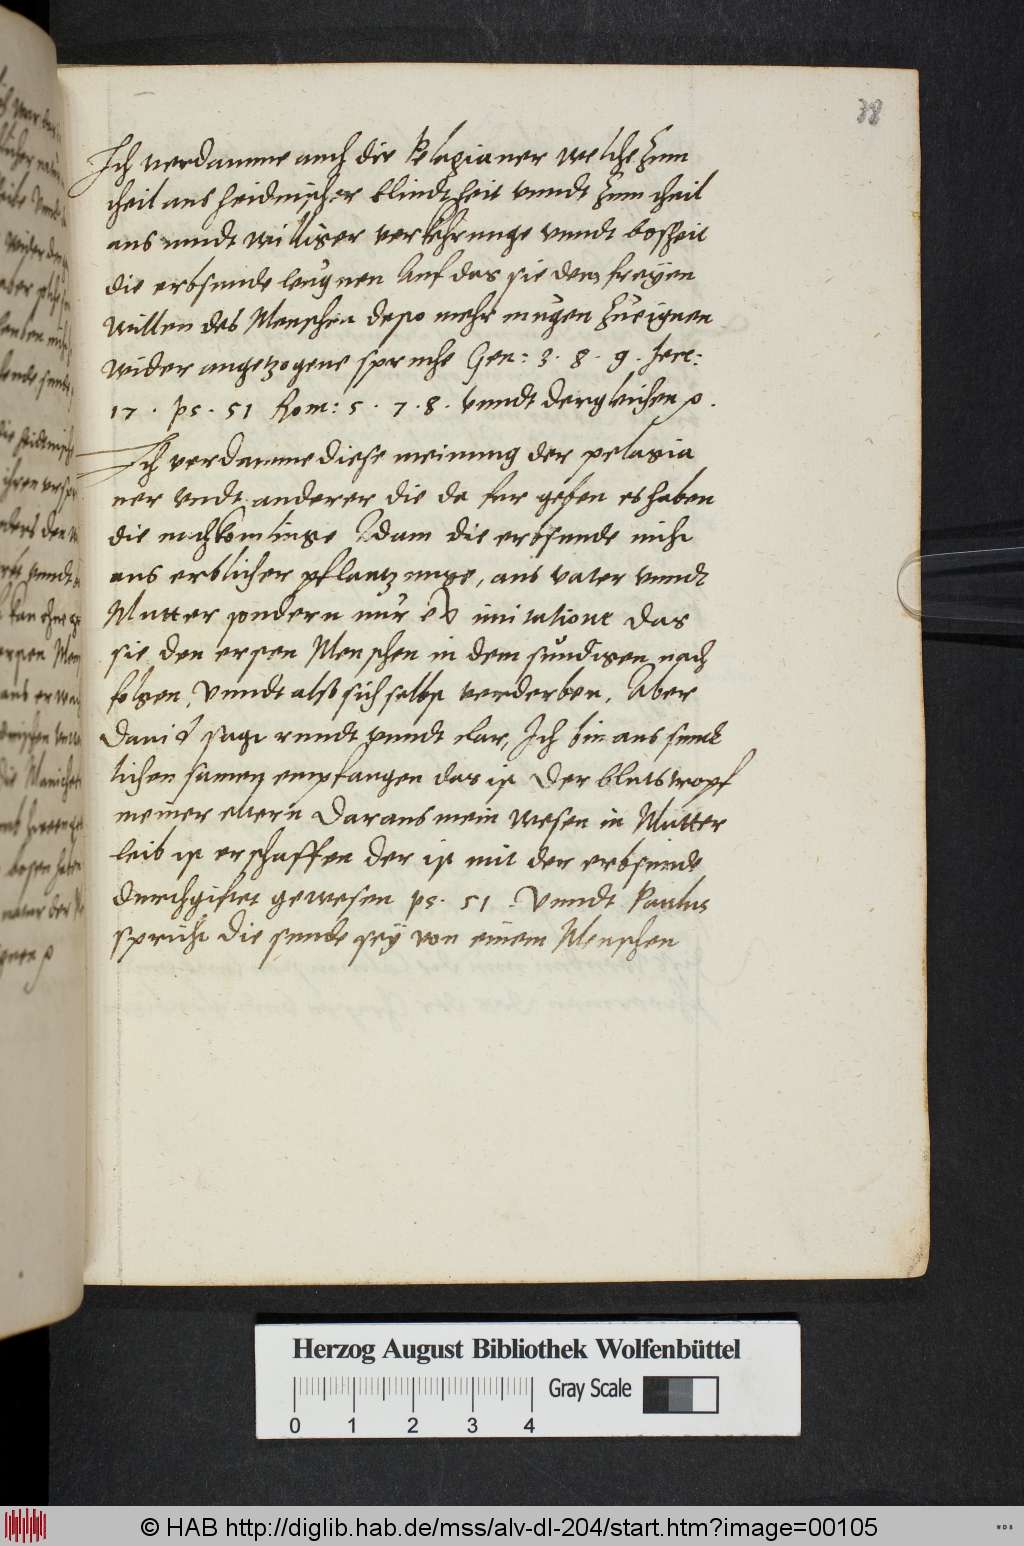 38
Ich verdamme auch die Pelagianer welche zum
theil aus heidnischer blindtheit vnndt zum theil
aus mudt williger verkehrunge vnndt bosheit
die erbsunde leugnen Auf das sie dem freyen
willen des Menschen desto mehr mugen zueignen
wider angetzogene spruche Gen: 3. 8. 9. Jere:
17. ps. 51 Rom: 5. 7. 8. vnndt dergleichen
Ich verdamme diese meinung der pelagia
ner vndt anderer die da fur geben es haben
die nachkomlinge Adam die erbsunde nicht
aus erblicher pflantzunge, aus vater vnndt
Mutter sondern nur ex imitatione das
sie den ersten Menschen in dem sundigen nach
folgen, vnndt also sich selbst verderben, Aber
Dauid sagt rundt vnndt clar, Ich bin aus sunt
lichen samen empfangen das ist der blutstropf
meiner eltern daraus mein wesen in Mutter
leib ist erschaffen der ist mit der erbsunde
durchgiftet gewesen ps. 51. Vnndt Paulus
spricht die sunde sey von einem Menschen
Herzog August Bibliothek Wolfenbüttel
0 1 2 3 4 Gray Scale
© HAB http://diglib.hab.de/mss/alv-dl-204/start.htm?image=00105